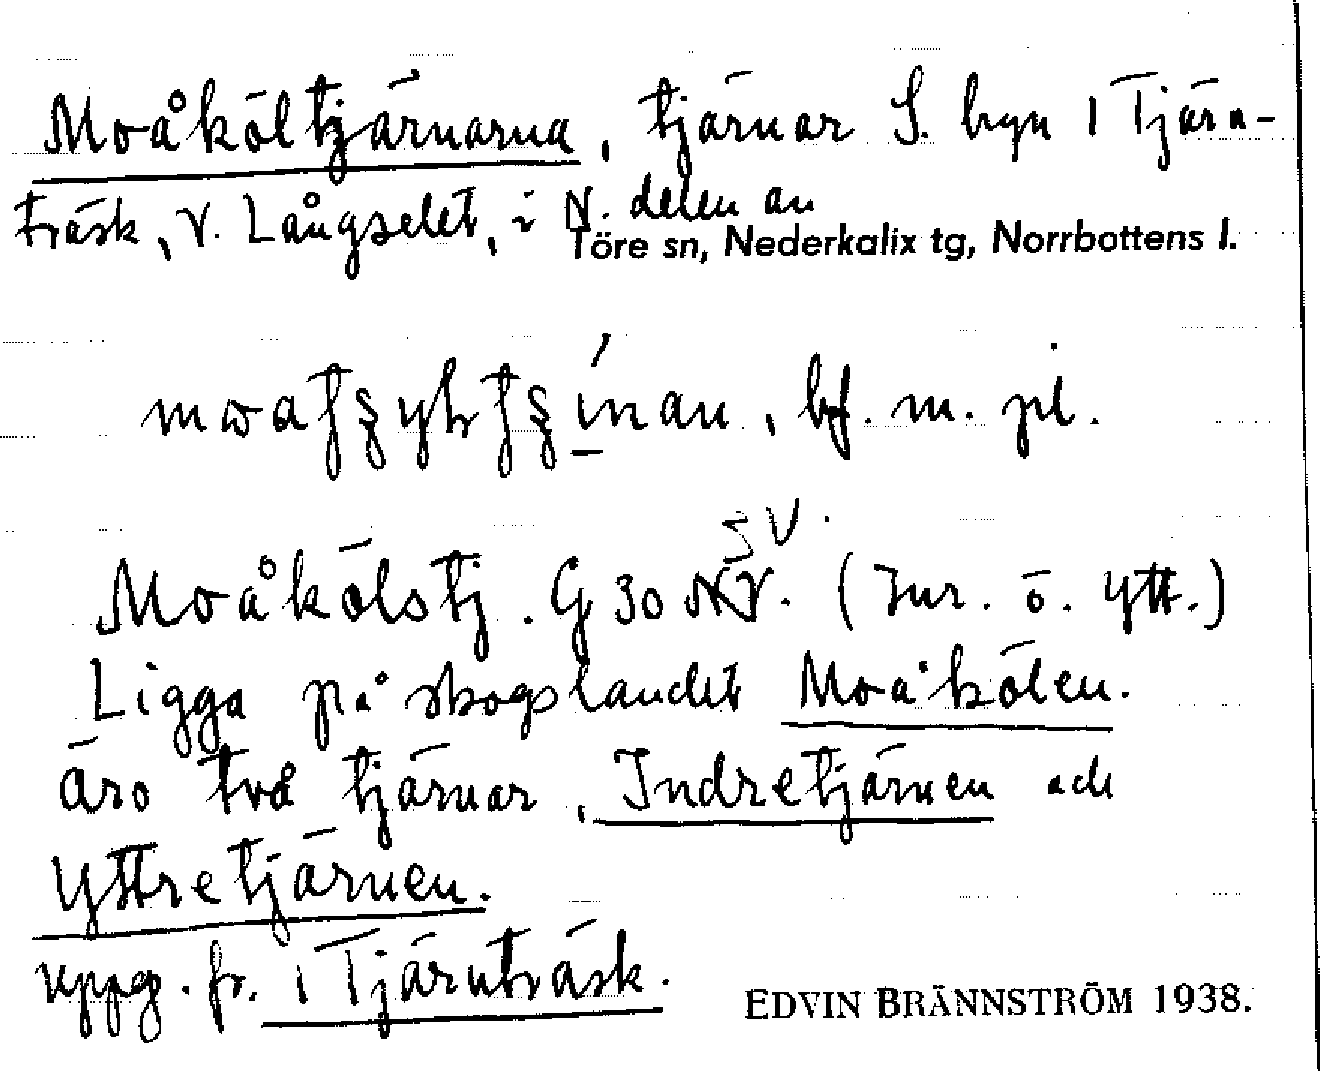 Moåköltjärnarna, tjärnar S. byn 1 Tjärn-
träsk, V. Långselet, i N. delen av
Töre sn, Nederkalix tg, Norrbottens l.
bf. m. pl.
SV.
Moåkölstj. G 30 NV. (Inr. o. ytt.)
Ligga på skogslandet Moåkölen.
äro två tjärnar, Indretjärnen och
Yttretjärnen.
uppg. fr. 1 Tjärnträsk.
EDVIN BRÄNNSTRÖM 1938.